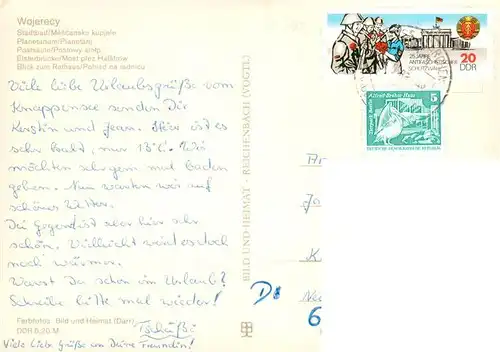 Wojerecy
Stadtbad/Měšćanske kupjele
Planetarium/Planetarij
Postsäule/Postowy stołp
Elsterbrücke/Most přez Halštrow
Blick zum Rathaus/Pohlad na radnicu
Viele liebe Urlaubsgrüße vom
Knappensee senden Dir
Kerstin und Jean. Hier ist es
sehr kalt, nur 13°C. Wir
möchten sehr gern mal baden
gehen. Nun warten wir auf
schönes Wetter.
Die Gegend ist aber hier sehr
schön. Vielleicht wird es doch
noch wärmer.
Warst Du schon im Urlaub?
Schreibe bitte mal wieder!
Tschüß!
Viele Liebe Grüße an Deine Freundin!
Farbfotos: Bild und Heimat (Darr)
DDR 0,20 M
BILD UND HEIMAT · REICHENBACH (VOGTL)
25 JAHRE
ANTIFASCHISTISCHER
SCHUTZWALL
20
DDR
Alfred-Brehm-Haus
Tierpark Berlin
5
DEUTSCHE DEMOKRATISCHE REPUBLIK
D
6